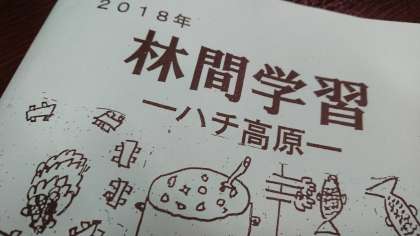 ２０１８年
林間学習
―ハチ高原―